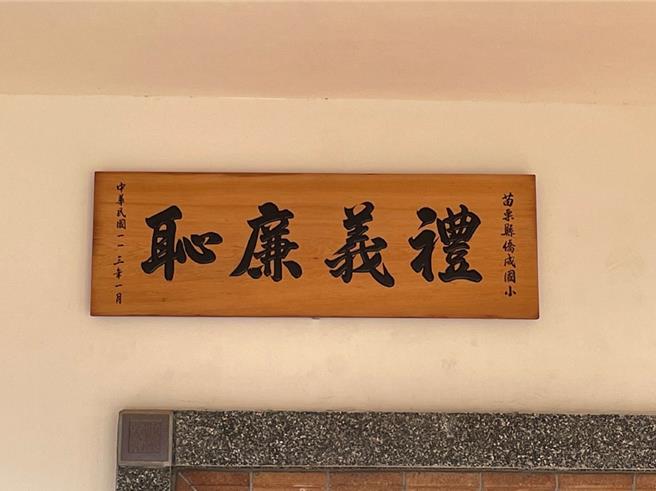 苗栗縣僑成國小
禮義廉恥
中華民國一一三年一月